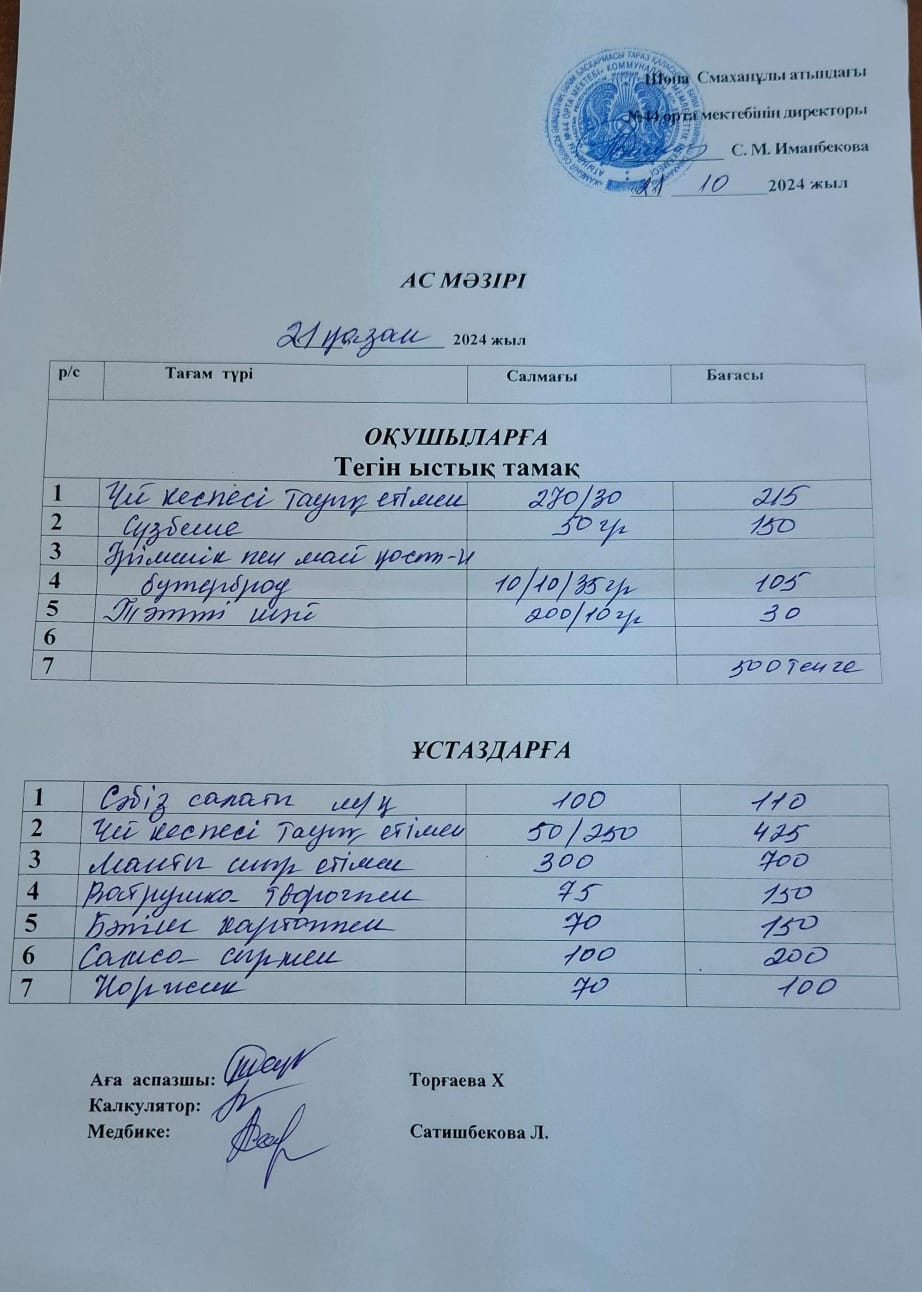 Шона Смаханұлы атындағы
№44 орта мектебінің директоры
С. М. Иманбекова
21 10 2024 жыл
АС МӘЗІРІ
21 қазан 2024 жыл
р/с Тағам түрі Салмағы Бағасы
ОҚУШЫЛАРҒА
Тегін ыстық тамақ
1 Үй кеспесі тауық етімен 270/30 215
2 Сүзбеше 50 гр 150
3 Ірімшік пен май қост-н
4 бутерброд 10/10/35гр 105
5 Тәтті шәй 200/10 гр 30
6
7 500 теңге
ҰСТАЗДАРҒА
1 Сәбіз салаты 100 110
2 Үй кеспесі тауық етімен 50/250 425
3 Манты сиыр етімен 300 700
4 Ватрушка творогпен 75 150
5 Бәліш картоппен 70 150
6 Самса сырмен 100 200
7 Коржик 70 100
Аға аспазшы: Торғаева Х
Калкулятор:
Медбике: Сатишбекова Л.